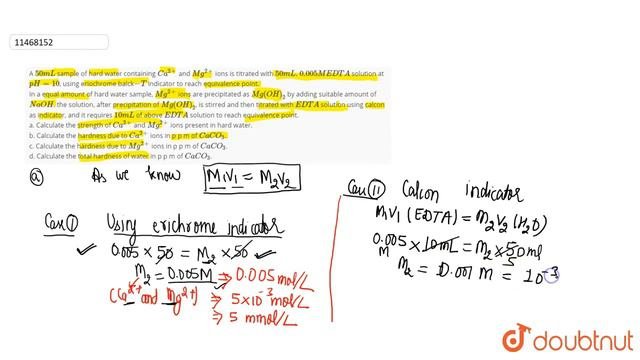 11468152
A 50mL sample of hard water containing Ca²⁺ and Mg²⁺ ions is titrated with 50mL. 0.005M EDTA solution at
pH = 10, using eriochrome balck - T indicator to reach equivalence point.
In a equal amount of hard water sample, Mg²⁺ ions are precipitated as Mg(OH)₂ by adding suitable amount of
NaOH the solution, after precipitation of Mg(OH)₂, is stirred and then titrated with EDTA solution using calcon
as indicator, and it requires 10mL of above EDTA solution to reach equivalence point.
a. Calculate the strength of Ca²⁺ and Mg²⁺ ions present in hard water.
b. Calculate the hardness due to Ca²⁺ ions in p p m of CaCO₃.
c. Calculate the hardness due to Mg²⁺ ion in p p m of CaCO₃.
d. Calculate the total hardness of water in p p m of CaCO₃.
(a) As we know M₁V₁ = M₂V₂
Case (I) Using erichrome indicator
0.005 × 50 = M₂ × 50
M₂ = 0.005M ⇒ 0.005 mol/L
(Ca²⁺ and Mg²⁺) ⇒ 5×10⁻³ mol/L
⇒ 5 mmol/L
Case (II) Calcon indicator
M₁V₁ (EDTA) = M₂V₂ (H₂O)
0.005 × 10mL = M₂ × 50 ml
M 5
M₂ = 0.001 M = 10⁻³
doubtnut